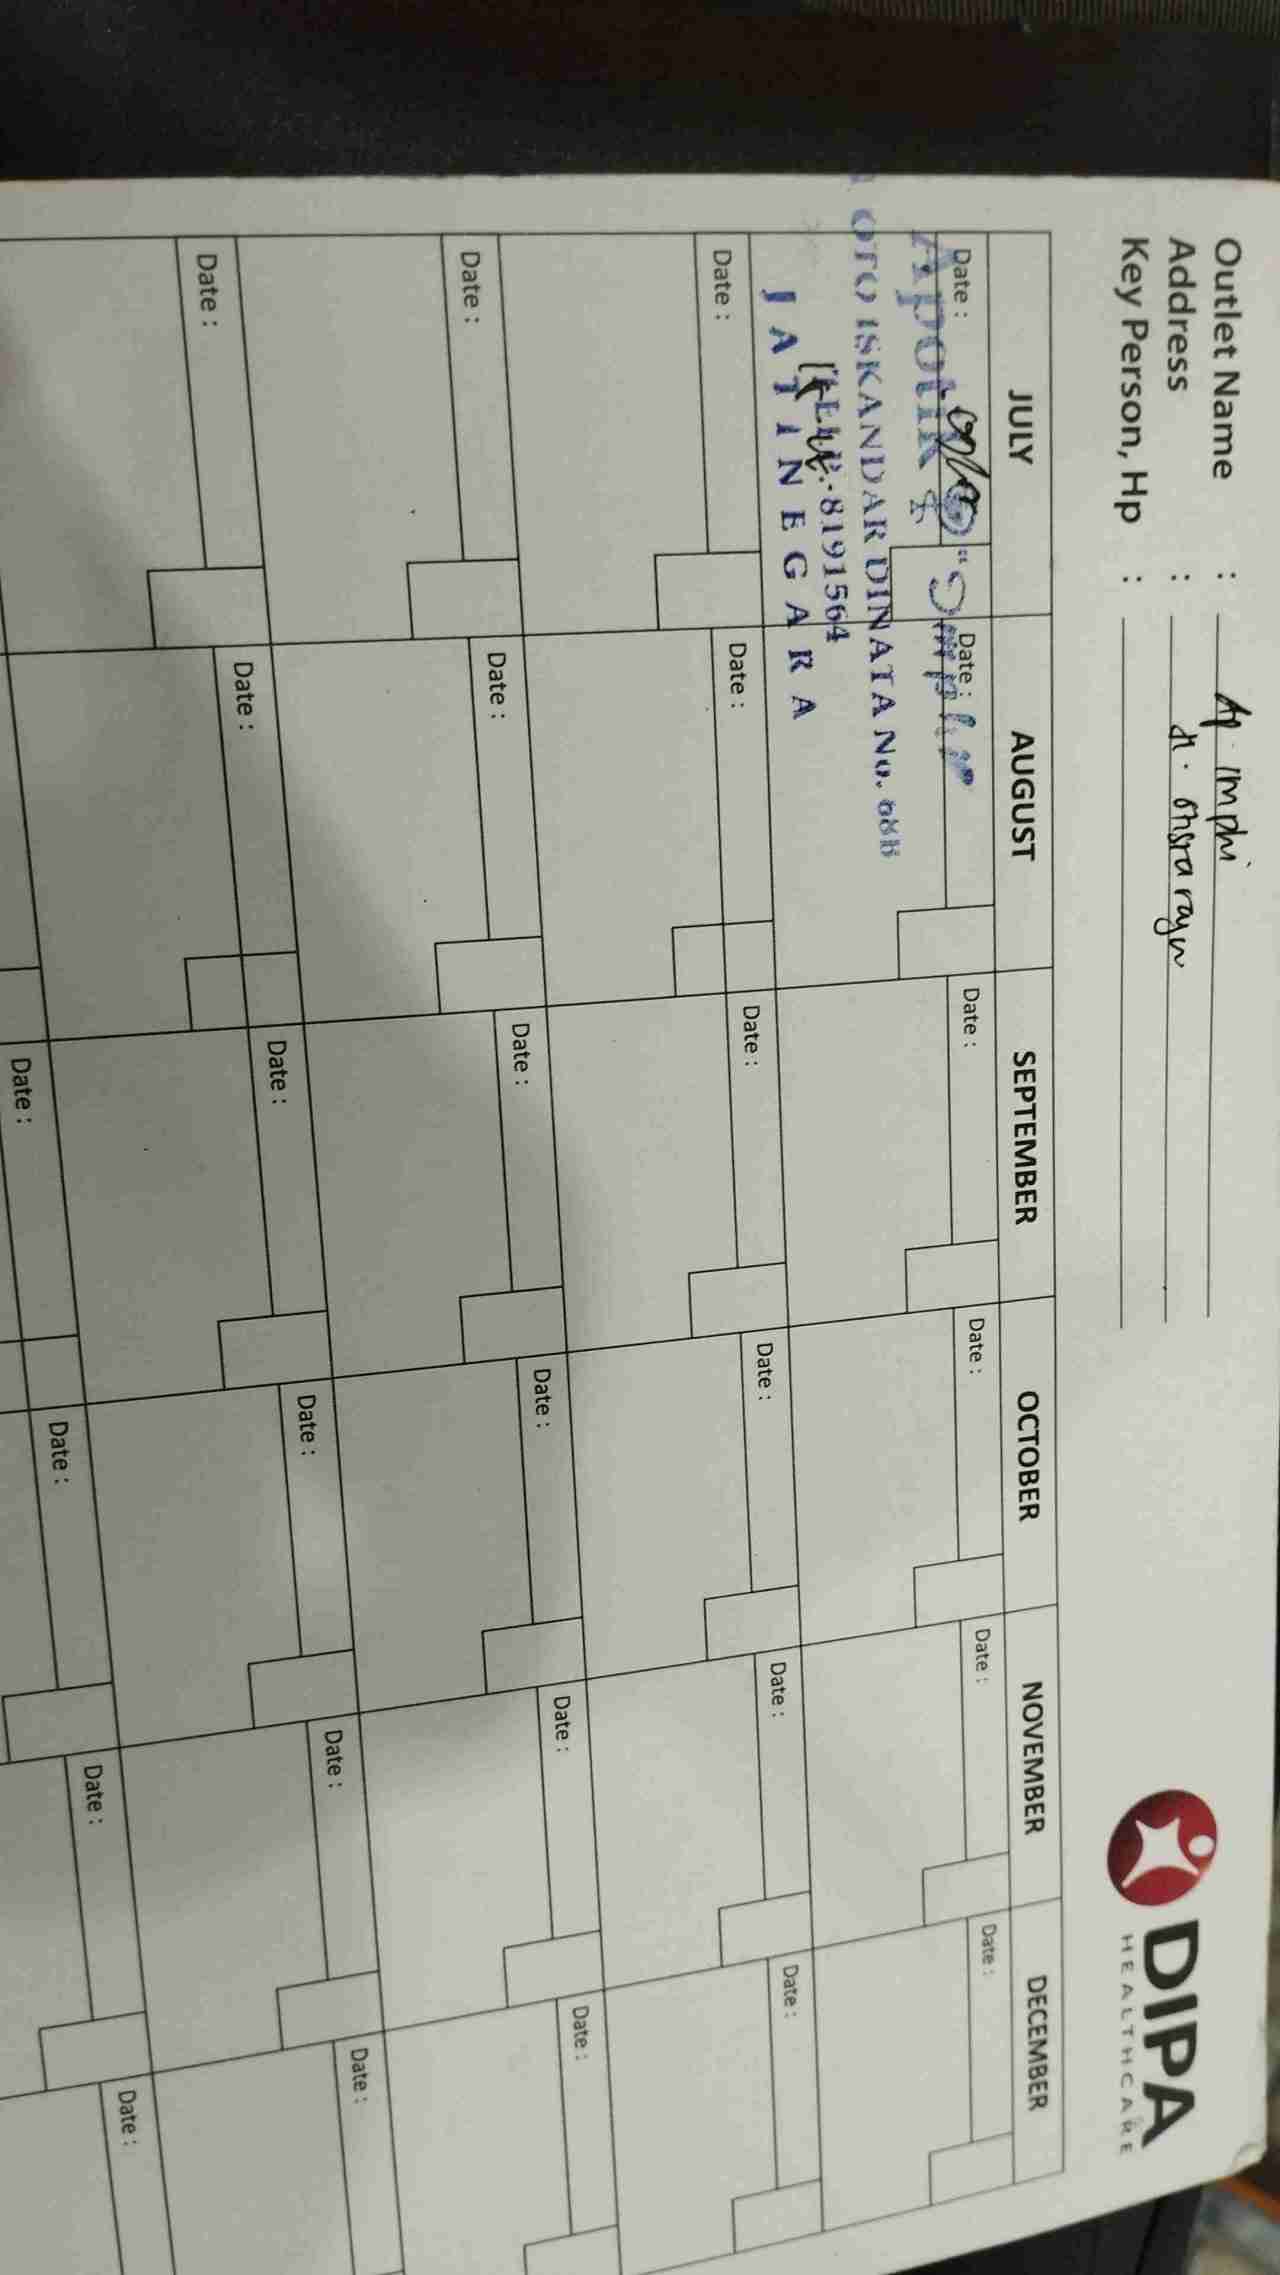 Outlet Name : Ap. imphi
Address :
Key Person, Hp :
DIPA
HEALTHCARE
JULY AUGUST SEPTEMBER OCTOBER NOVEMBER DECEMBER
Date : Date : Date : Date : Date : Date :
Apotik
OTO ISKANDAR DINATA No. 68B
TELP. 8191564
JATINEGARA
Date : Date : Date : Date : Date : Date :
Date : Date : Date : Date : Date : Date :
Date : Date : Date : Date : Date : Date :
Date : Date : Date : Date :